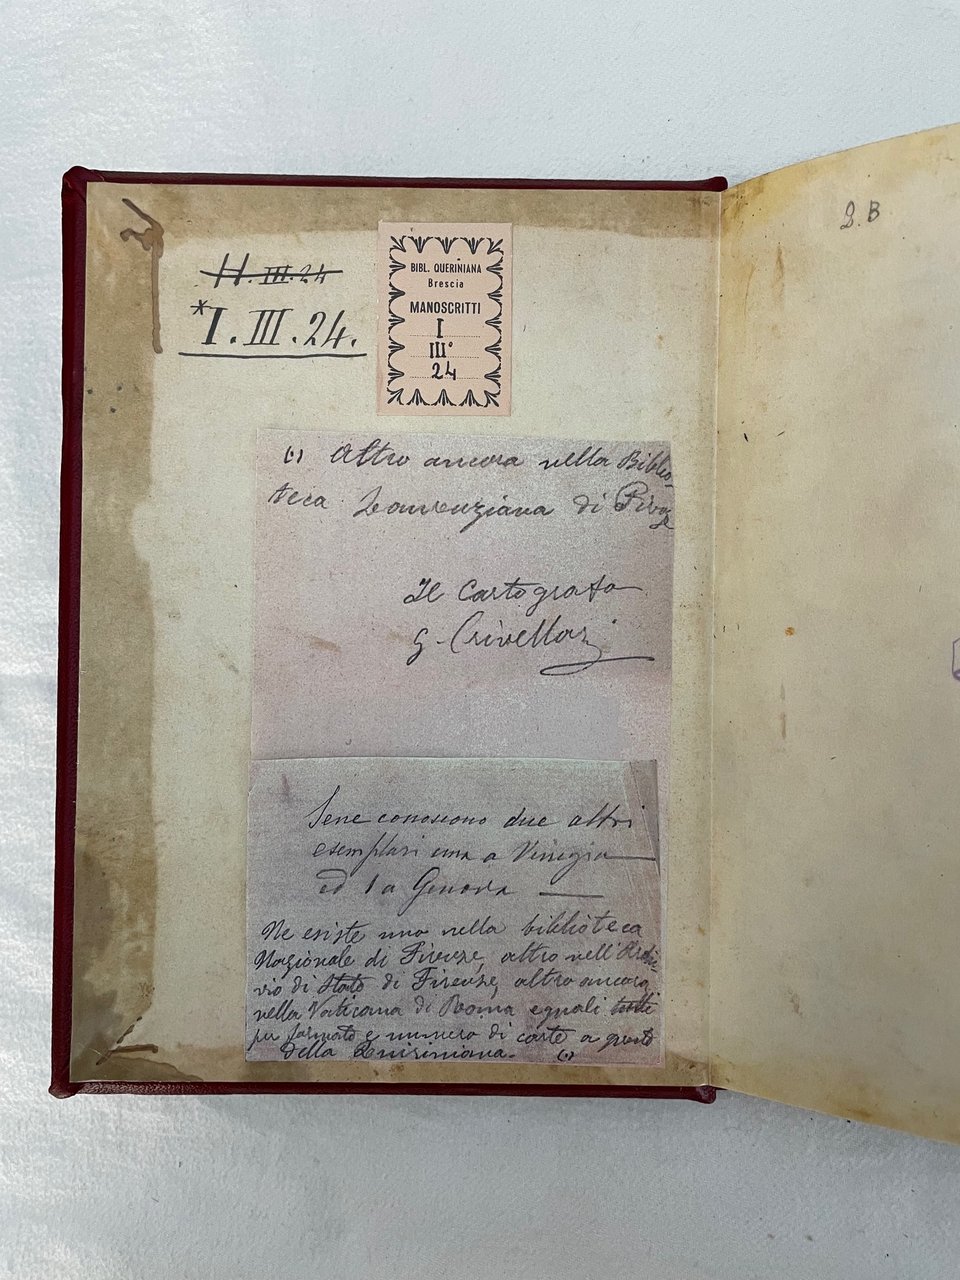 H.III.24
*I.III.24.
BIBL. QUERINIANA
Brescia
MANOSCRITTI
I
III°
24
2.B
(·) Altro ancora nella Biblio-
teca Laurenziana di
Il Cartografo
G. Crivellari
Sene conoscono due altri
esemplari uno a Venezia
ed 1 a Genova
Ne esiste uno nella biblioteca
Nazionale di Firenze, altro nell'Archi-
vio di Stato di Firenze, altro ancora
nella Vaticana di Roma eguali tutti
per formato e numero di carte a questo
della Quiriniana. (·)